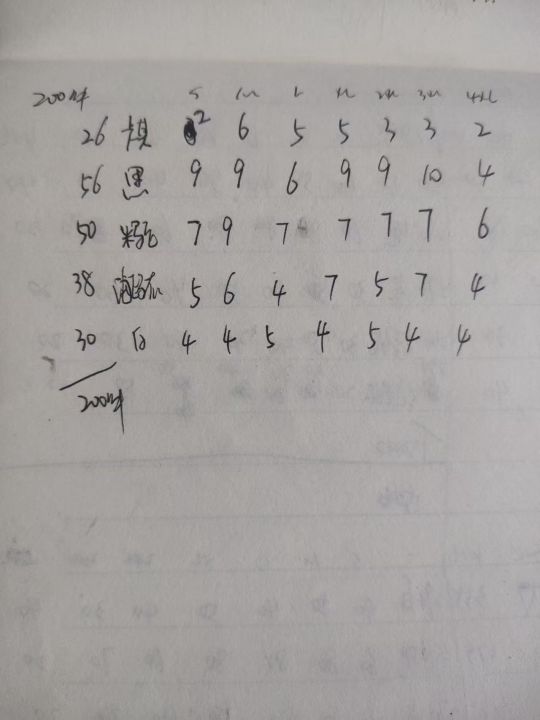 200件 S M L XL 2XL 3XL 4XL
26 棋 2 6 5 5 3 3 2
56 黑 9 9 6 9 9 10 4
50 7 9 7 7 7 7 6
38 5 6 4 7 5 7 4
30 白 4 4 5 4 5 4 4
200件